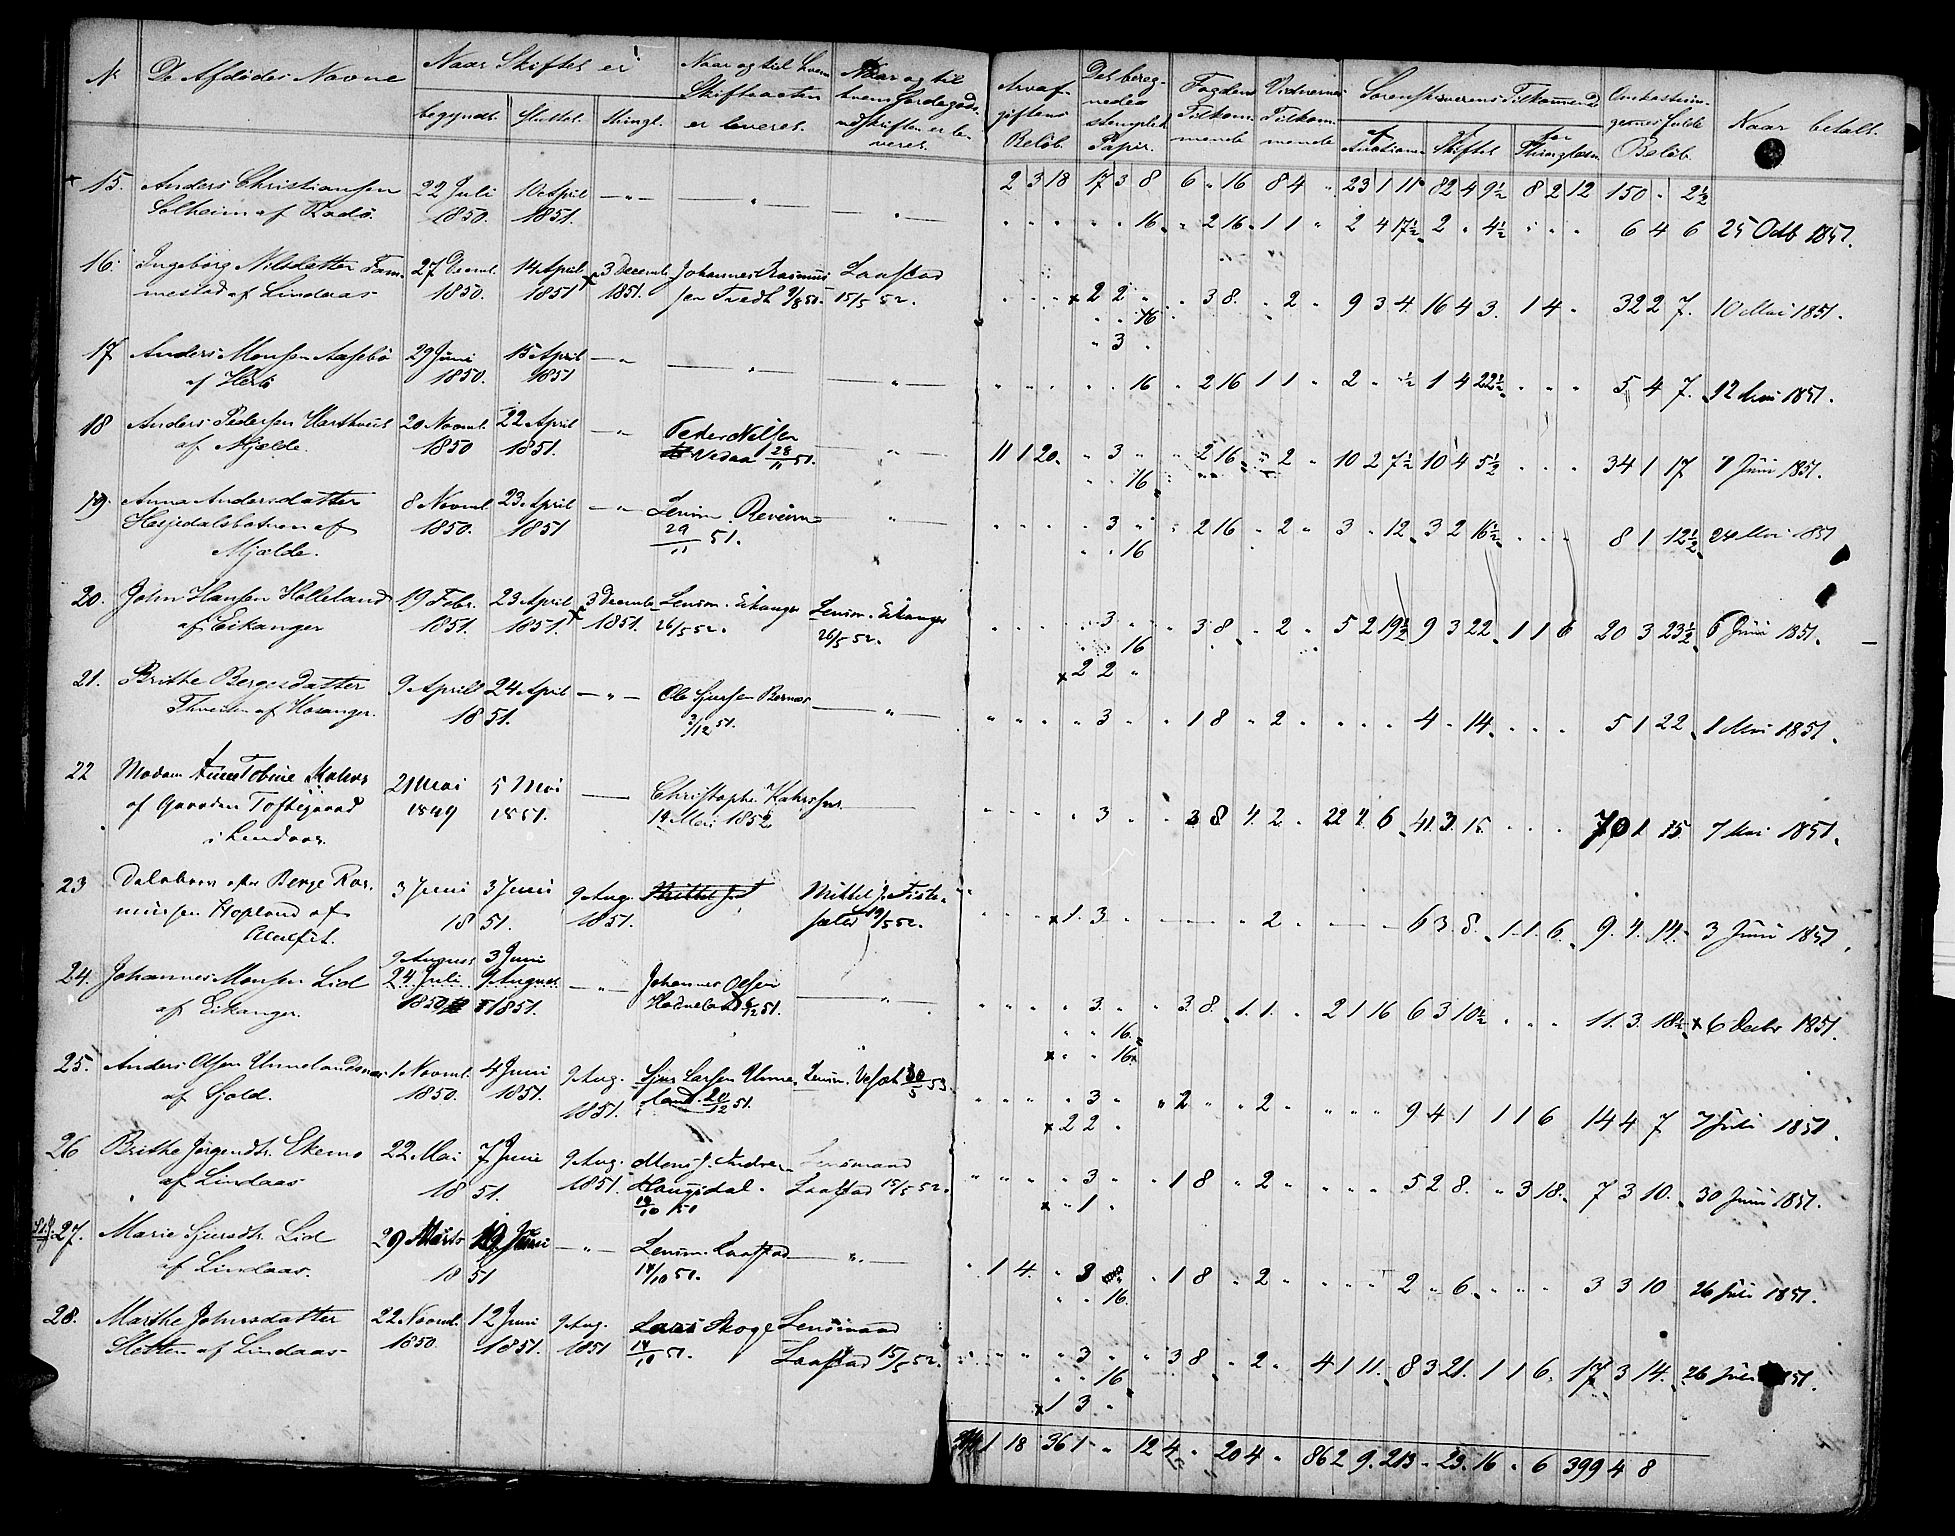 N. De Afdødes Navne Naar Skiftet er Naar og til hvem Skifteacten er leveret. Naar og til hvem Jordegods-udskriften er leveret. Arveafgiftens Beløb. Det beregnede stemplet Papir. Fogdens Tilkommende Vidnernes Tilkommende Sorenskriverens Tilkommende Omkostningernes fulde Beløb. Naar betalt.
begyndt. sluttet. thingl. af Auctionen Skiftet for Thinglæsn.
15. Anders Christiansen 22 Juli 10 April 2 3 18 17 3 8 6 " 16 8 4 " 23 1 11 82 4 9½ 8 2 12 150 " 2½
Solheim af Radø. 1850. 1851. 16 " 2 16 1 1 " 2 4 17½ 2 " 4½ 6 4 6 25 Octb 1851.
16. Ingeborg Nilsdatter Fam- 27 Decmb. 14 April 3 Decemb. Johannes Rasmus- Laastad
mestad af Lindaas 1850. 1851 1851. sen Tvedt 15/5 52. x 2 2 " 3 8. " 2 " 9 3 4. 16 4 3. 1 4 " 32 2 7. 10 Mai 1851.
" " 16
" 3 "
17 Anders Monsen Aasebø 29 Juni 15 April
af Herlø 1850. 1851 16 " 2 16 1 1 " 2 " ½ 1 4 22½ 5 4 7. 12 Mai 1851.
18 Anders Pedersen Hartveit 20 Novmb. 22 April Peder Nilsen
af Mjelde. 1850 1851. Vedaa 28/11 51. 11 1 20. " 3 " 2 16 " 2 " 10 2 7½ 10 4 5½ 34 1 17 7 Juni 1851.
" " 16
19. Anna Andersdatter 8 Novmb 23 April Lensm. Reveim
Hesjedalsbotnen af 1850. 1851 29/11 51. " 3 " 2 16 " 2 " 3 " 12 3 2 16½ 8 1 12½ 24 Mai 1851
Mjelde. " " 16
20. John Hansen Helleland 19 Febr. 23 April 3 Decemb. Lensm. Eikanger Lensm. Eikanger
af Eikanger 1851. 1851. 1851. 26/5 52. 26/5 52. " 3 " 3 8 " 2 " 5 2 19½ 9 3 22 1 1 6 20 3 23½ 6 Juni 1851.
" " 16
x 2 2 "
21. Brithe Bergesdatter 9 April 24 April Ole Sjursen Bernæs
Thveiten af Hosanger. 1851. 3/12 51. " 3 " " 1 8 " 2 " 4 " 14 5 1 22 1 Mai 1851.
22 Madam Anne Tobine 21 Mai 5 Mai Christopher Kahrs
af Gaarden Toftegaard 1849 1851. 14 Mai 1852 " 3 " 3 8 4. 2. " 22 4. 6 41. 3. 15. 70 1 15 7 Mai 1851.
i Lindaas
23 Dødsboet efter Berge Ras- 3 Juni 3 Juni 9 Aug. Mikkel J. Mikkel J. Fiske-
mussen Hopland af 1851. 1851. sæter 19/5 52. x 1. 3 " " 2 " 6 3. 8. 1. 1. 6. 9. 4. 14. 3 Juni 1851.
Alverfit.
9 August 3 Juni
24. Johannes Monsen Lid 24 Juli 9 August Johannes Olsen
af Eikanger. 1850 1851. Hodneland 6/12 51. " 3. " " 3. 8. 1. 1. " 2 1 16 6 3 10½ 11. 3. 18½ x 6 Decbr 1851.
" " 16.
x " " 16.
25. Anders Olsen Unnelandsnes 1 Novmb. 4 Juni 9 Aug. Sjur Larsen Unne- Lensm. 30/5 53.
af Gjold. 1850. 1851. 1851. land. 20/12 51. " 3 " " 2 " " 2 " 9 4 1 1 1 6 14 4 7 7 Juli 1851.
x 2 2 "
26 Brithe Jørgensdtr. Ekemo 22 Mai 7 Juni 9 Aug. Mons J. Indre Lensmand
af Lindaas 1851. 1851. Haugsdal. Laastad 15/5 52. " 3 " 1 8 " 2 " 5 2 8. " 3 18. 7 3 10. 30 Juni 1851.
14/10 51 x " 1 "
27. Marie Sjursdtr. Lid 29 Marts Juni Lensm. Laastad
af Lindaas. 1851 14/10 51. " 1 4. " 3 " " 1 8 " 2 " 2 " 6 3 3 10 26 Juli 1851.
" " 16.
28. Marthe Johnsdatter 22 Novmb. 12 Juni 9 Aug. Lars Skoge Lensmand
Sletten af Lindaas 1850. 1851. 1851 14/10 51. Laastad 15/5 52. " 3 " 3 8 " 2 " 4 1 11. 8 3 21. 1 1 6. 17 3 14. 26 Juli 1851.
" " 16
x 1 3 "
1 18 36 1 " 12 4 " 20 4 " 86 2 9. 213 " 23. 16 " 6 399 4 8